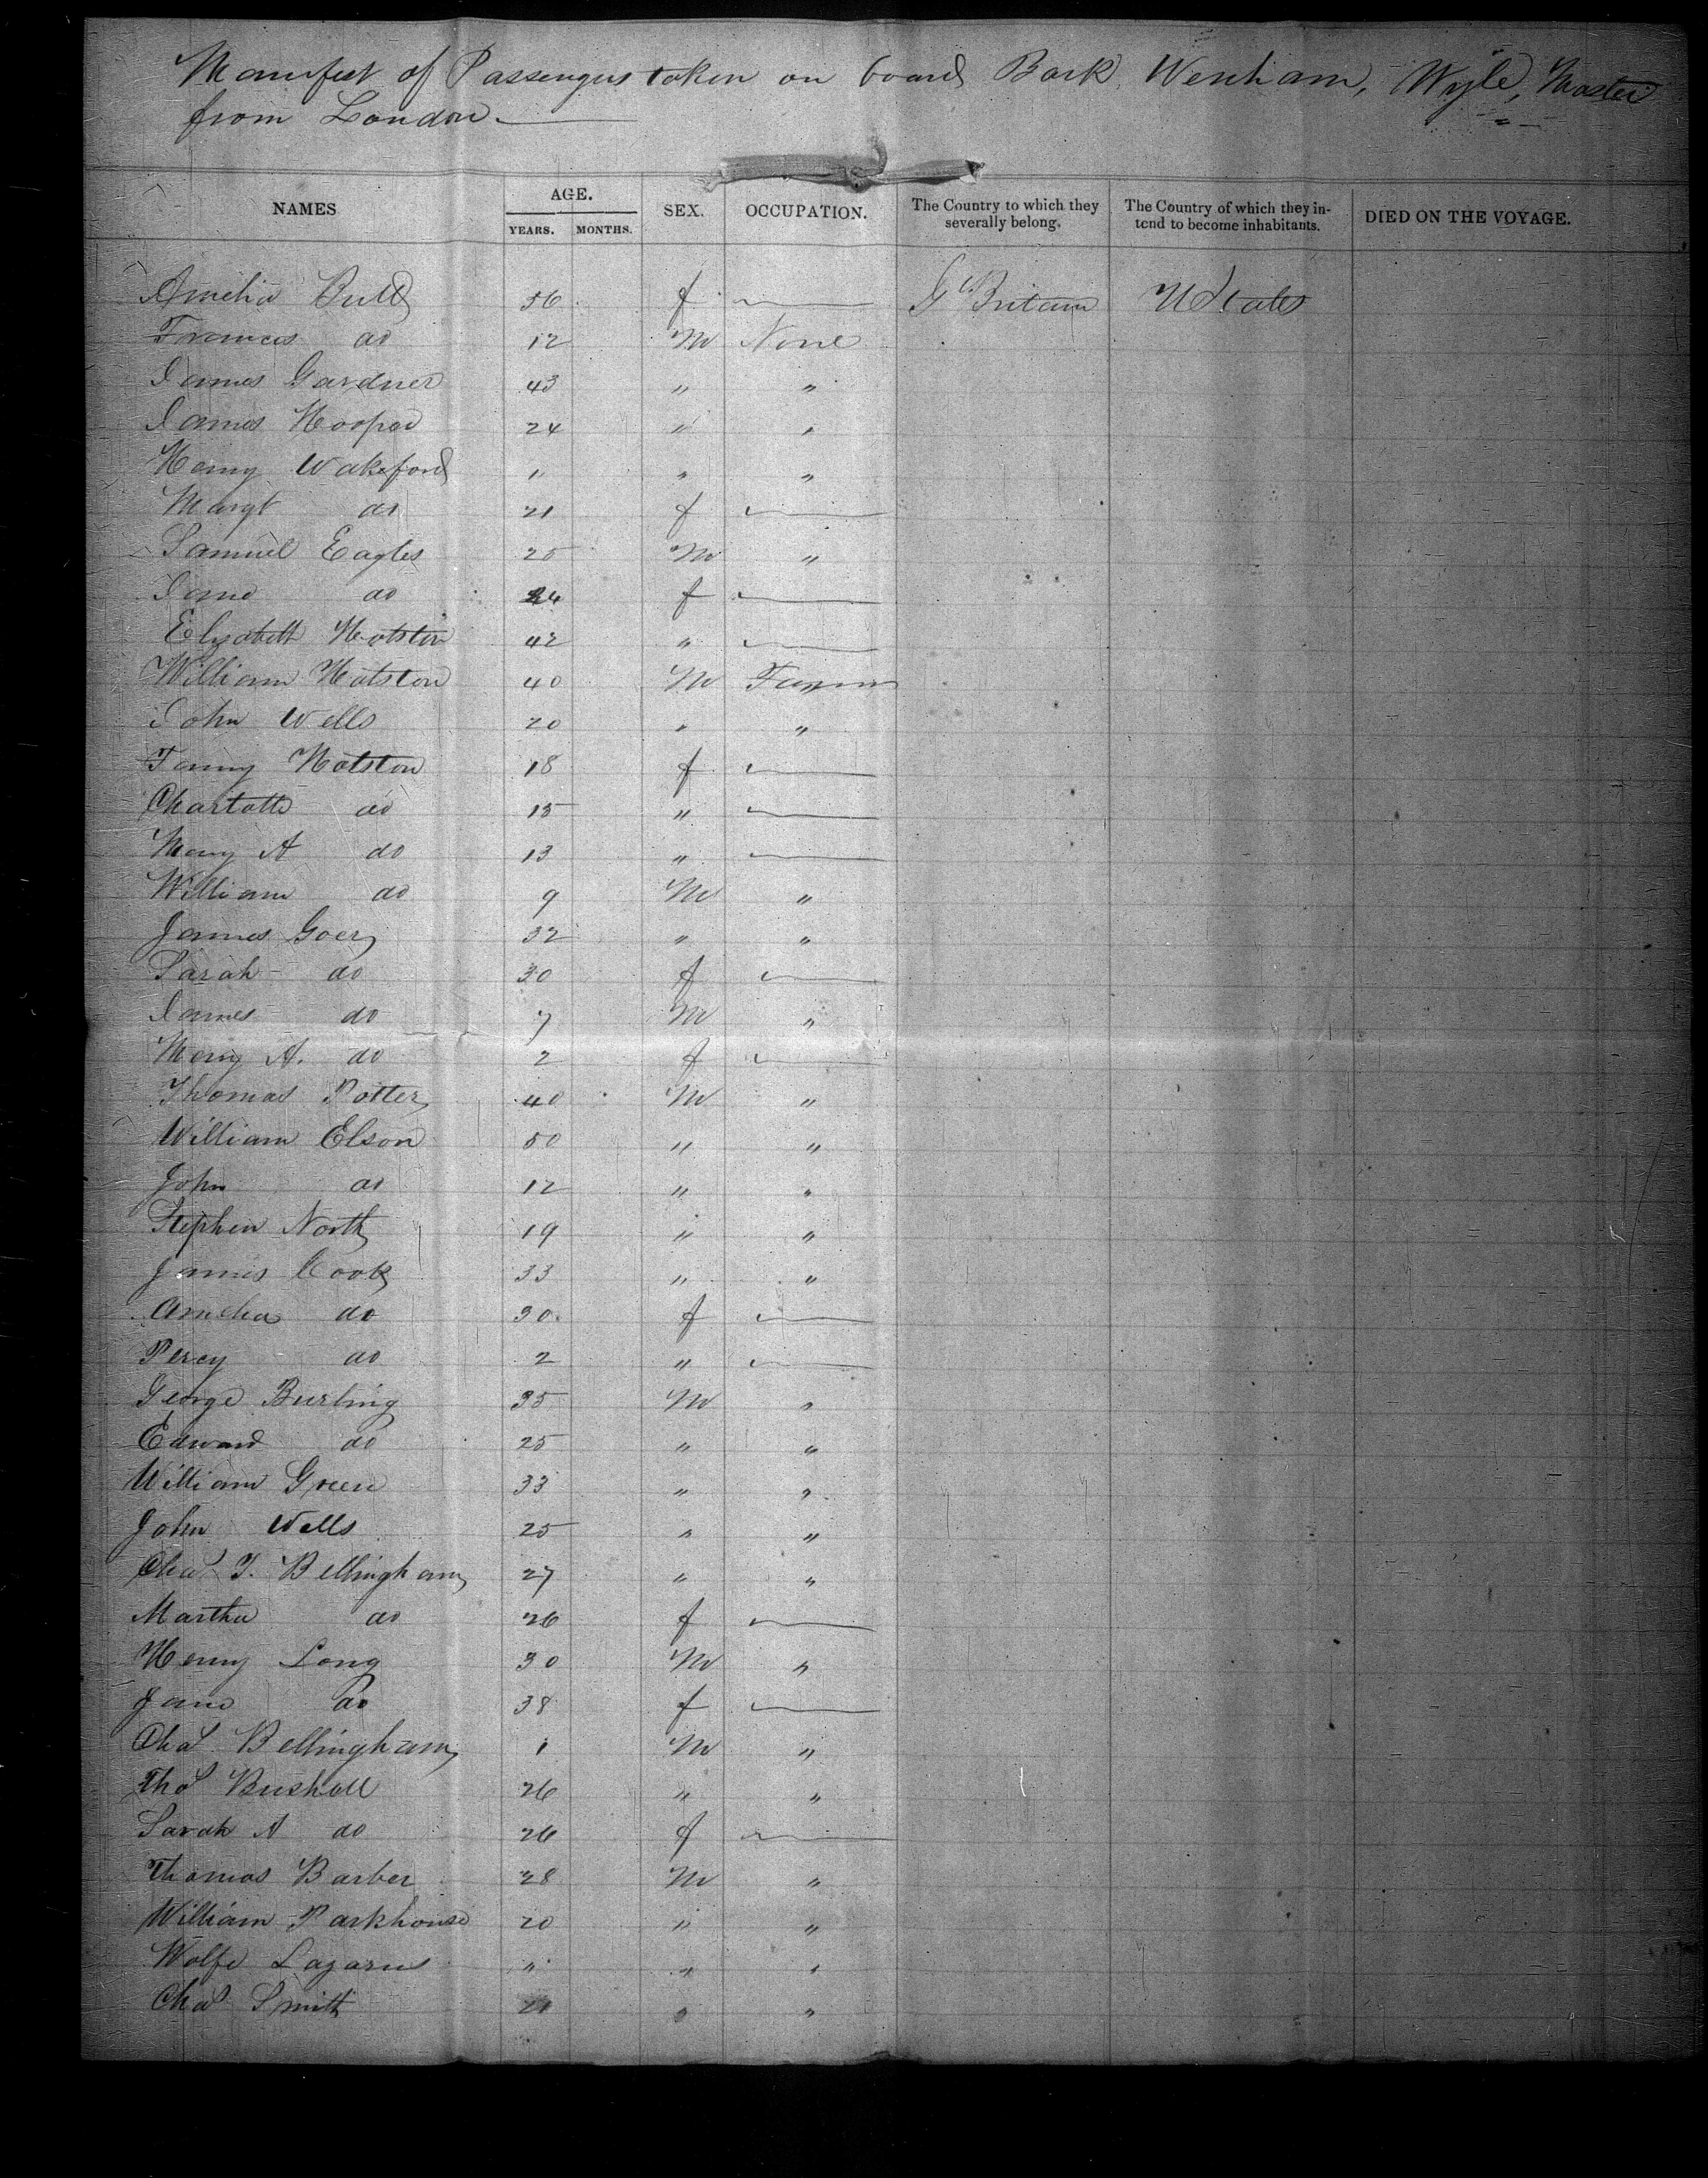 Manifest of Passengers taken on board Bark Wenham, Wyle, Master
from London.
NAMES AGE. YEARS. MONTHS. SEX. OCCUPATION. The Country to which they severally belong. The Country of which they intend to become inhabitants. DIED ON THE VOYAGE.
Amelia Bull 36 f — Gt Britain U States
Frances do 12 M None
James Gardner 43 " "
James Hooper 24 " "
Henry Wakeford " " "
Margt do 21 f —
Samuel Eagles 25 M "
Jane do 24 f —
Elizabeth Hotston 42 " —
William Hotston 40 M Farmer
John Wells 20 " "
Fanny Hotston 18 f —
Charlotte do 15 " —
Mary A do 13 " —
William do 9 M "
James Goer 32 " "
Sarah do 30 f —
James do 7 M "
Mary A. do 2 f —
Thomas Potter 40 M "
William Elson 50 " "
John do 12 " "
Stephen North 19 " "
James Cook 33 " "
Amelia do 30 f —
Percy do 2 " —
George Burling 35 M "
Edward do 25 " "
William Green 33 " "
John Wells 25 " "
Chas T. Bellingham 27 " "
Martha do 26 f —
Henry Long 30 M "
Jane do 38 f —
Chas Bellingham 1 M "
Thos Bushall 26 " "
Sarah A do 26 f —
Thomas Barber 28 M "
William Parkhouse 20 " "
Wolfe Lazarus " " "
Chas Smith 21 " "